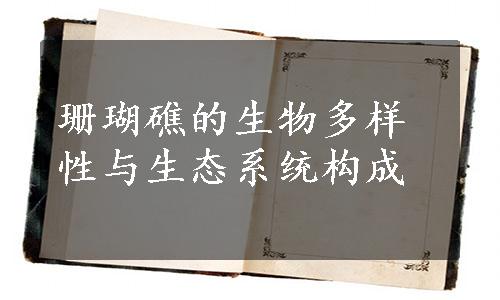 珊瑚礁的生物多样
性与生态系统构成